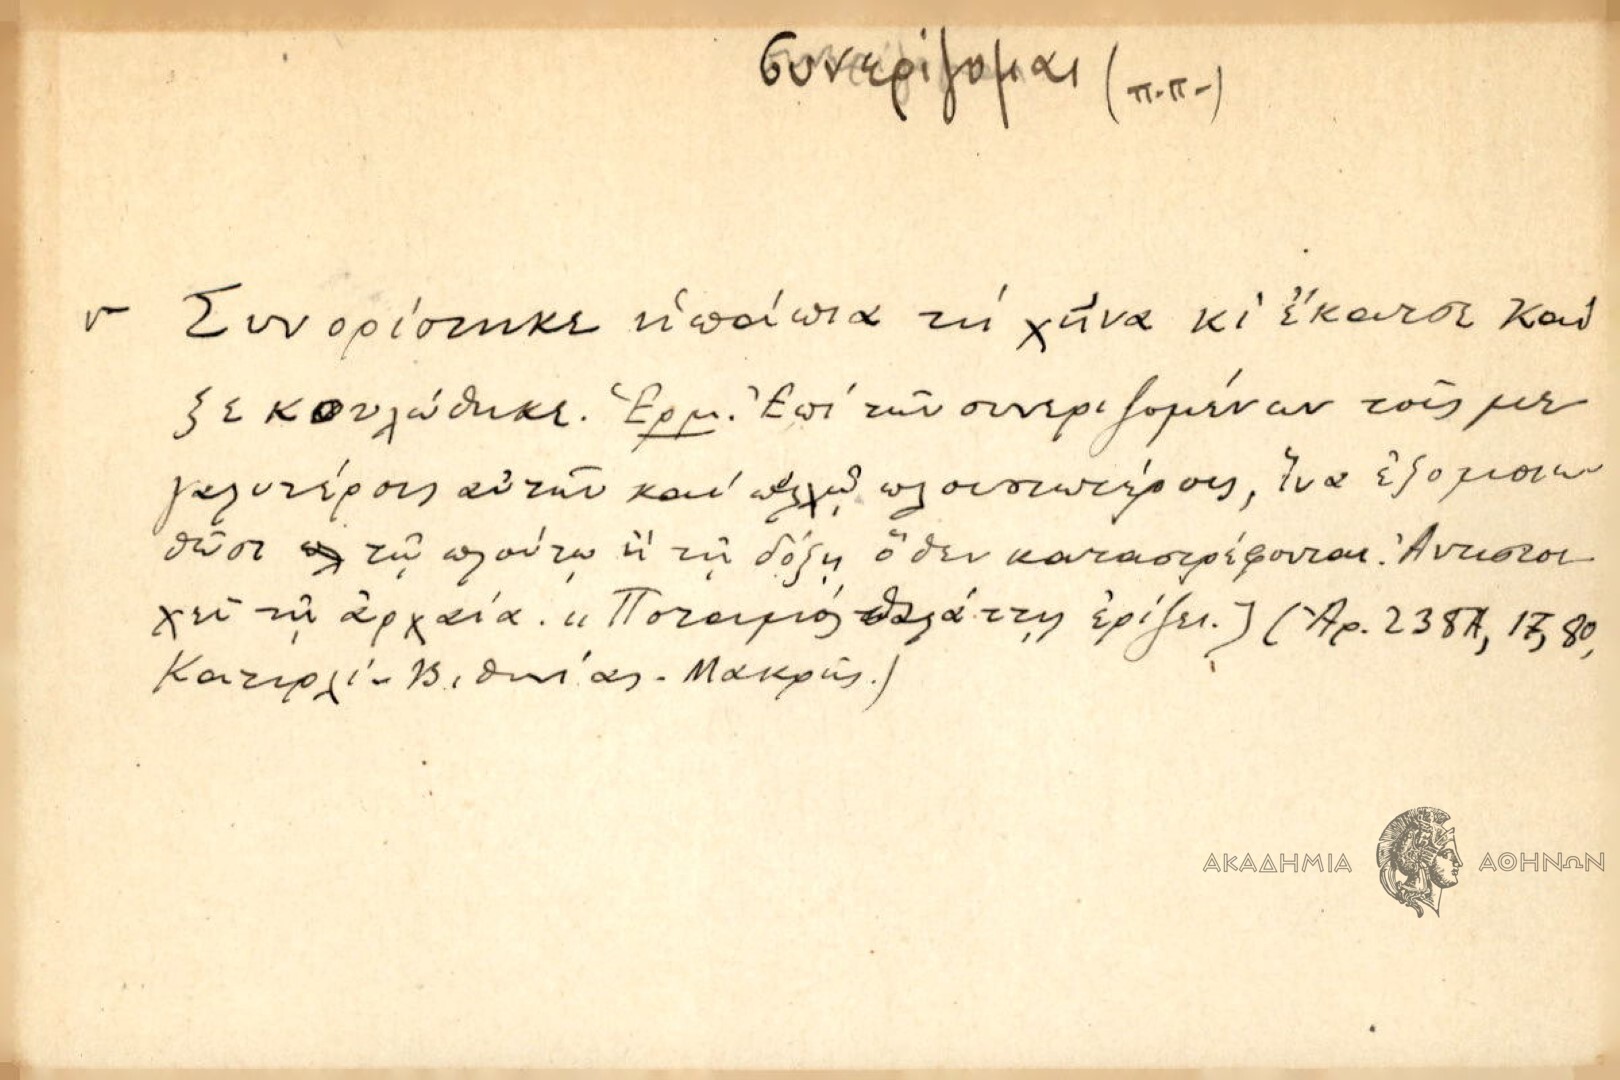 συνερίζομαι (π.π.)
Συνορίστηκε ἡ πάπια τὴ χῆνα κι' ἔκατσε καὶ
ξεκουλώθηκε. Ἑρμ. Ἐπὶ τῶν συνεριζομένων τοῖς με
γαλυτέροις αὐτῶν καὶ πλουσιωτέροις, ἵνα ἐξομοιω
θῶσι τῷ πλούτῳ ἢ τῇ δόξῃ ὅθεν καταστρέφονται. Ἀντιστοι
χεῖ τῇ ἀρχαίᾳ. "Ποταμὸς θαλάττῃ ἐρίζει.] (Ἀρ. 238Α, 17, 80,
Κατιρλί - Βιθυνίας - Μακρῆς.)
ΑΚΑΔΗΜΙΑ ΑΘΗΝΩΝ